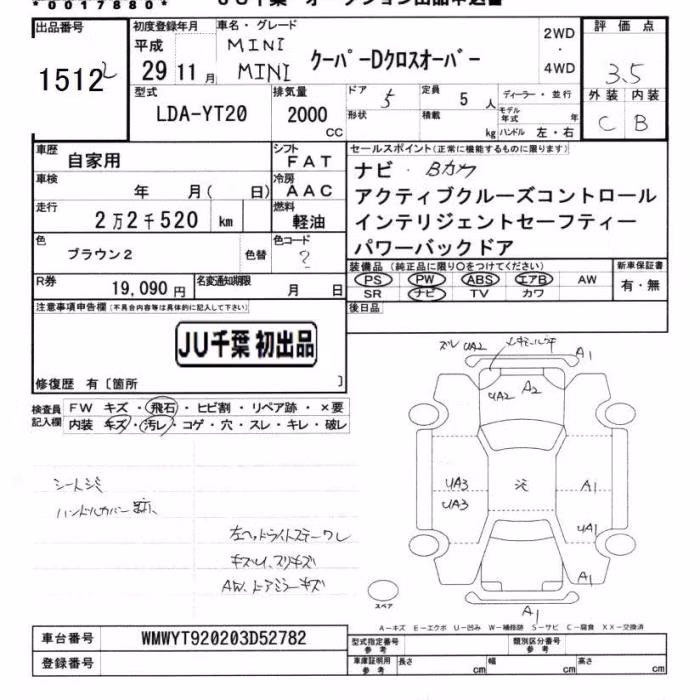 *0017880*
JU千葉 オークション出品申込書
出品番号 初度登録年月 車名・グレード 2WD・4WD 評価点
1512 平成 29 11月 MINI 3.5
MINI クーパーDクロスオーバー
外装 内装
C B
型式 排気量 ドア 定員 ディーラー・並行
LDA-YT20 2000 CC 5 5人 モデル年式 年
形状 積載 kg ハンドル 左・右
車歴 自家用 シフト FAT セールスポイント(正常に機能するものに限ります)
車検 年 月( 日) 冷房 AAC
ナビ・Bカメラ
アクティブクルーズコントロール
走行 2万2千520 km 燃料 軽油
インテリジェントセーフティー
パワーバックドア
色 ブラウン2 色替 色コード ?
装備品(純正品に限り○をつけてください) 新車保証書
PS PW ABS エアB AW 有・無
SR ナビ TV カワ
R券 19,090円 名変通知期限 月 日
後日品
注意事項申告欄(不具合内容等は具体的に記入して下さい)
JU千葉 初出品
修復歴 有〔箇所 〕
検査員記入欄 FW キズ・飛石・ヒビ割・リペア跡・×要
内装 キズ・汚レ・コゲ・穴・スレ・キレ・破レ
ズレ UA2 A1
UA2 A2
UA3 A1
UA3
UA1
A1
A1
シートシミ
ハンドルカバー
左ヘッドライトステーワレ
キズU、スリキズ
AW、ドアミラーキズ
スペア
A-キズ E-エクボ U-凹み W-補修跡 S-サビ C-腐食 XX-交換済
車台番号 WMWYT920203D52782
型式指定番号 参考 類別区分番号 参考
登録番号
車庫証明用 参考 長さ cm 幅 cm 高さ cm